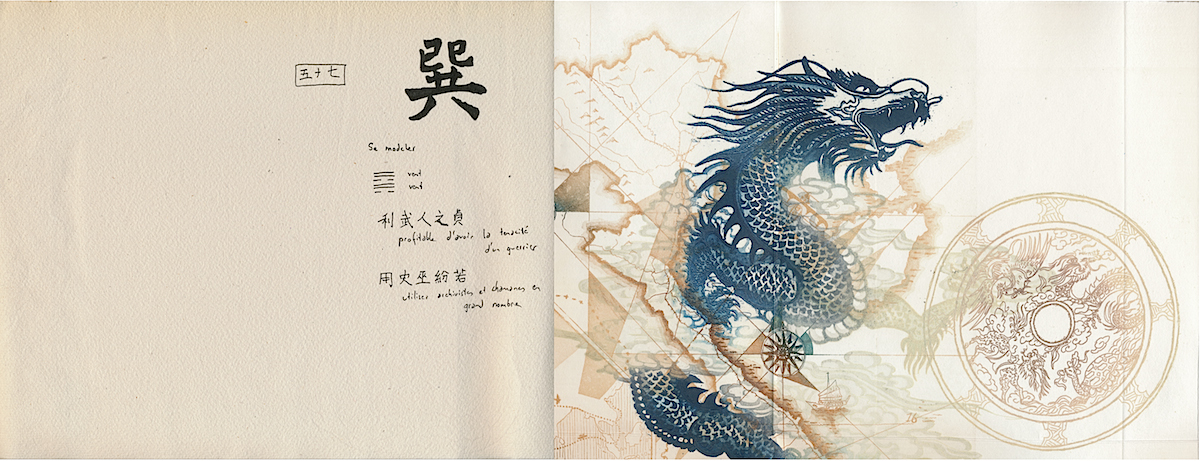 五十七
巽
Se modeler
vent
vent
利武人之貞
profitable d'avoir la tenacité
d'un guerrier
用史巫紛若
utiliser archivistes et chamanes en
grand nombre
16